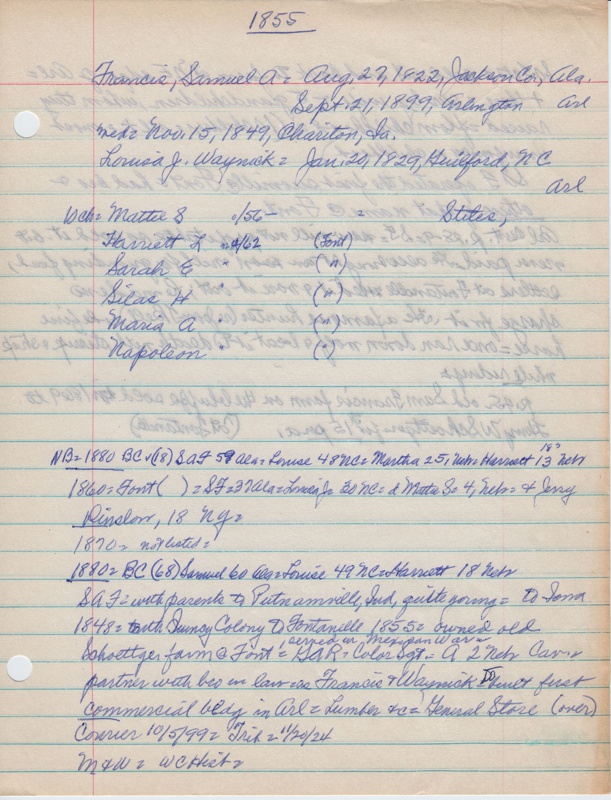 1855
Francis, Samuel A = Aug. 27, 1822, Jackson Co, Ala.
Sept. 21, 1899, Arlington Arl
md = Nov. 15, 1849, Chariton, Ia.
Louisa J. Waynick = Jan. 20, 1829, Guilford, NC
Arl
ch = Mattie S /56 - = Stiles,
Harriett L 4/62 (Font)
Sarah E " (")
Silas H " (")
Maria A " (")
Napoleon " (")
NB = 1880 BC (68) SAF 59 Ala = Louise 48 NC = Martha 25, Nebr = Harriett 18? 13 Nebr
1860 = Font ( ) = SF = 37 Ala = Louisa J = 30 NC = d Mattie S = 4, Nebr = & Jerry
Winslow, 18 NY =
1870 = not listed =
1880 = BC (68) Samuel 60 Ala = Louise 49 NC = Harriett 18 Nebr
SAF = with parents to Putnamville, Ind, quite young = to Iowa
1848 = with Quincy Colony to Fontanelle 1855 = owned old
served in Mexican War =
Schoettger farm @ Font = GAR = Color Sgt = A 2 Nebr Cav =
partner with bro in law = as Francis & Waynick built first
commercial bldg in Arl = Lumber &c = General Store (over)
Courier 10/5/99 = Trib = 11/20/24
M&W = WC Hist =